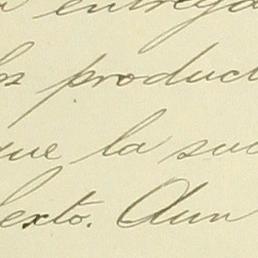 entrega
los product
que la suc
exto. Aun